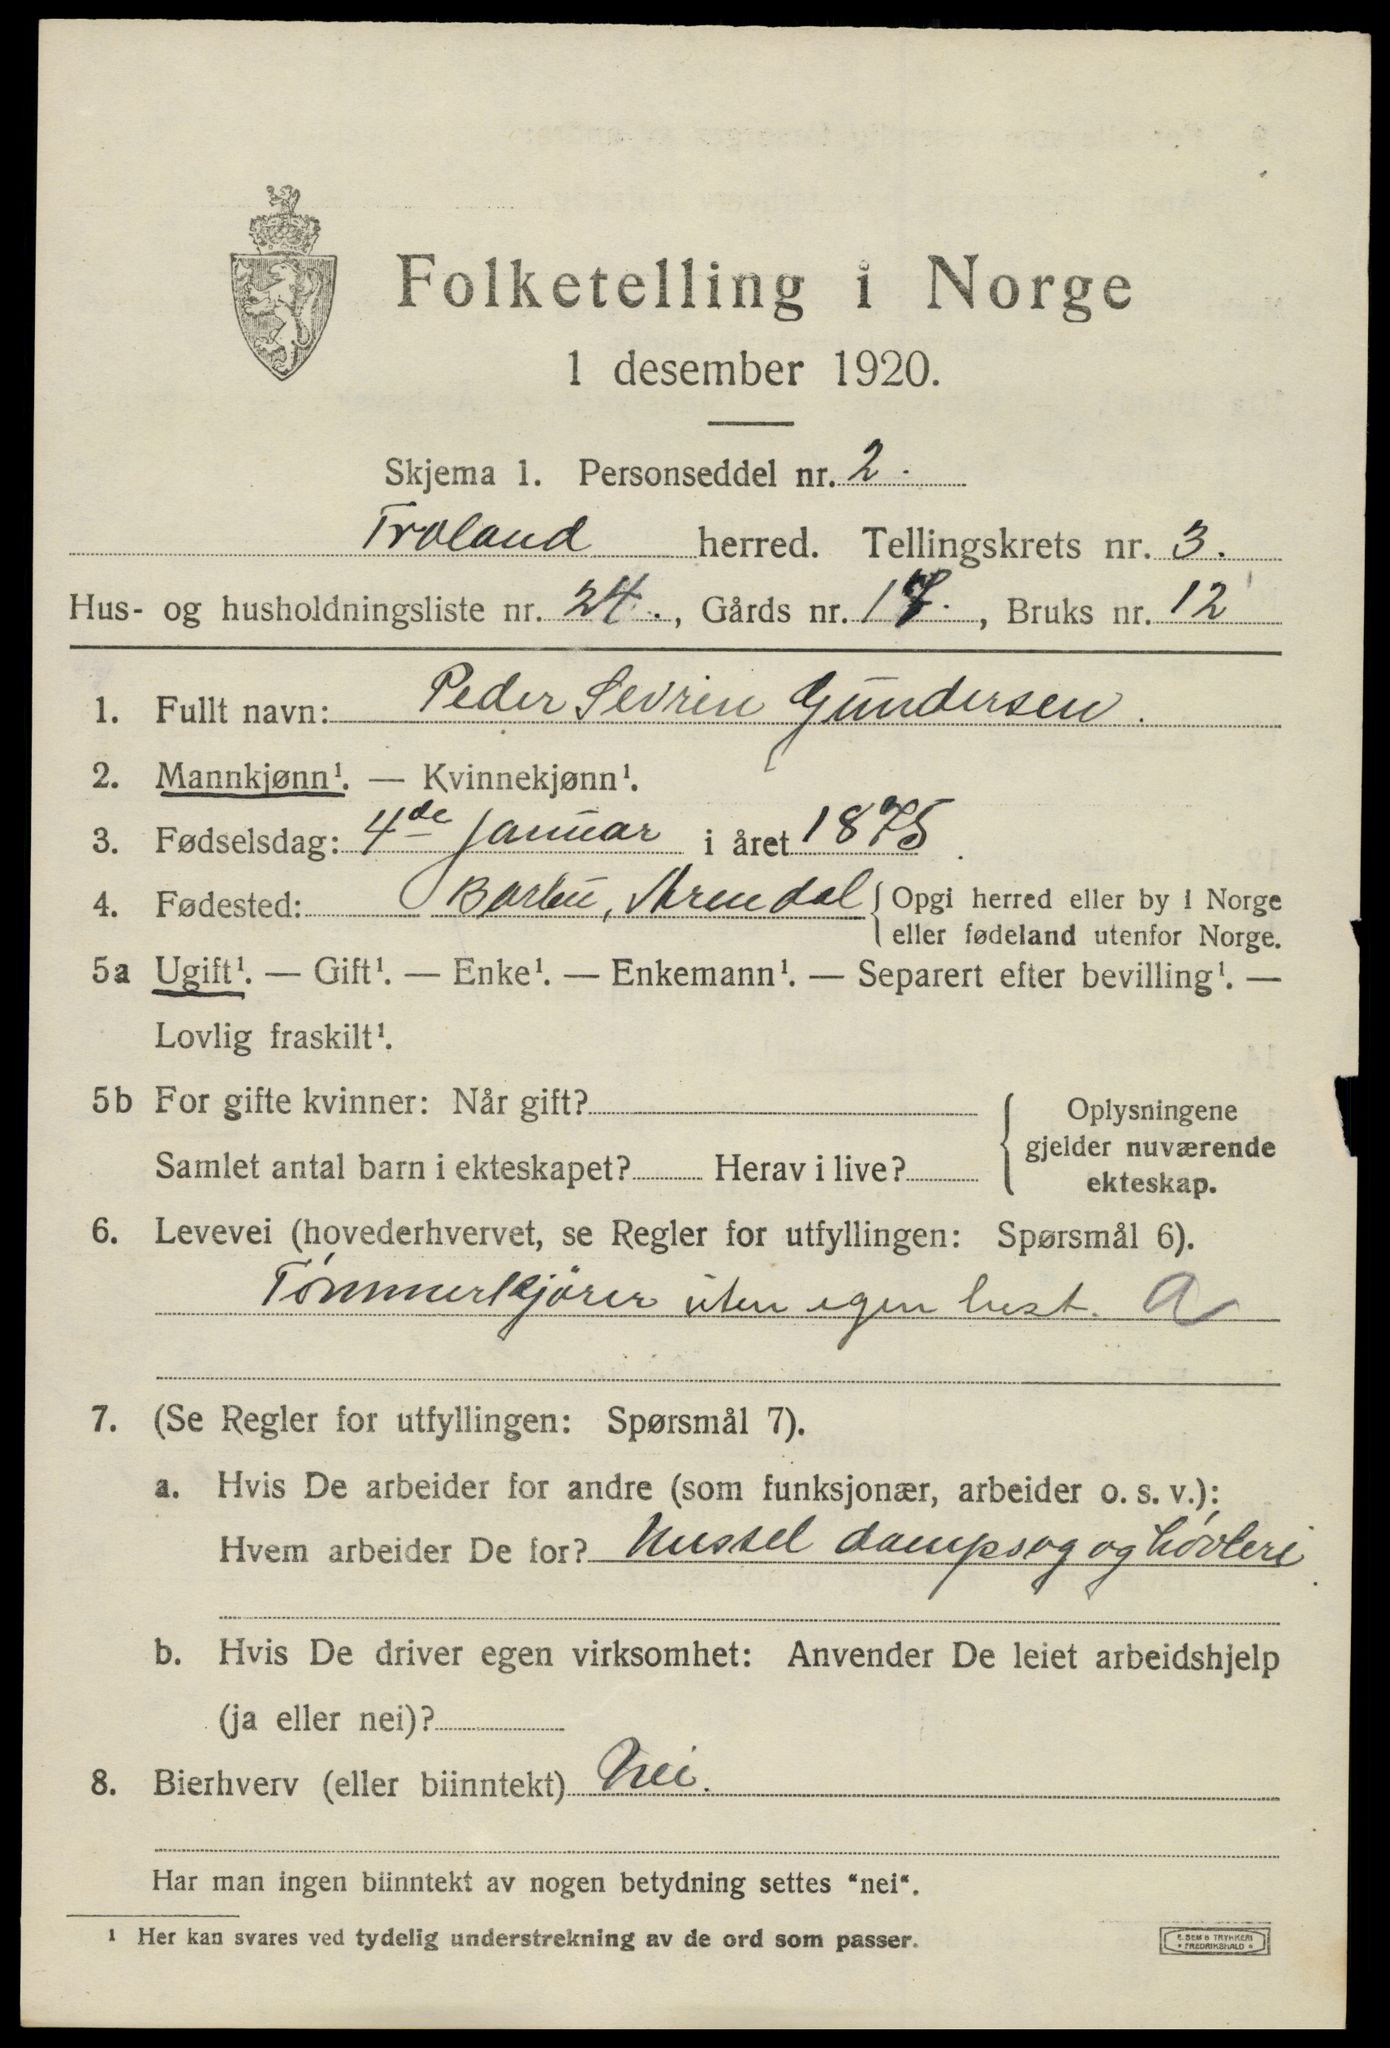 Folketelling i Norge
1 desember 1920.
Skjema 1. Personseddel nr. 2.
Froland herred. Tellingskrets nr. 3.
Hus- og husholdningsliste nr. 24., Gårds nr. 17., Bruks nr. 12
1. Fullt navn: Peder Sevrin Gundersen.
2. Mannkjønn¹. — Kvinnekjønn¹.
3. Fødselsdag: 4de januar i året 1875.
4. Fødested: Barbu, Arendal { Opgi herred eller by i Norge
eller fødeland utenfor Norge.
5a Ugift¹. — Gift¹. — Enke¹. — Enkemann¹. — Separert efter bevilling¹. —
Lovlig fraskilt¹.
5b For gifte kvinner: Når gift?
Samlet antal barn i ekteskapet? Herav i live?
{ Oplysningene
gjelder nuværende
ekteskap.
6. Levevei (hovederhvervet, se Regler for utfyllingen: Spørsmål 6).
Tømmerkjörer uten egen hest. A
7. (Se Regler for utfyllingen: Spørsmål 7).
a. Hvis De arbeider for andre (som funksjonær, arbeider o. s. v.):
Hvem arbeider De for? dampsag og hövleri
b. Hvis De driver egen virksomhet: Anvender De leiet arbeidshjelp
(ja eller nei)?
8. Bierhverv (eller biinntekt) Nei.
Har man ingen biinntekt av nogen betydning settes "nei".
¹ Her kan svares ved tydelig understrekning av de ord som passer.
E. SEM'S TRYKKERI
* FREDRIKSHALD *